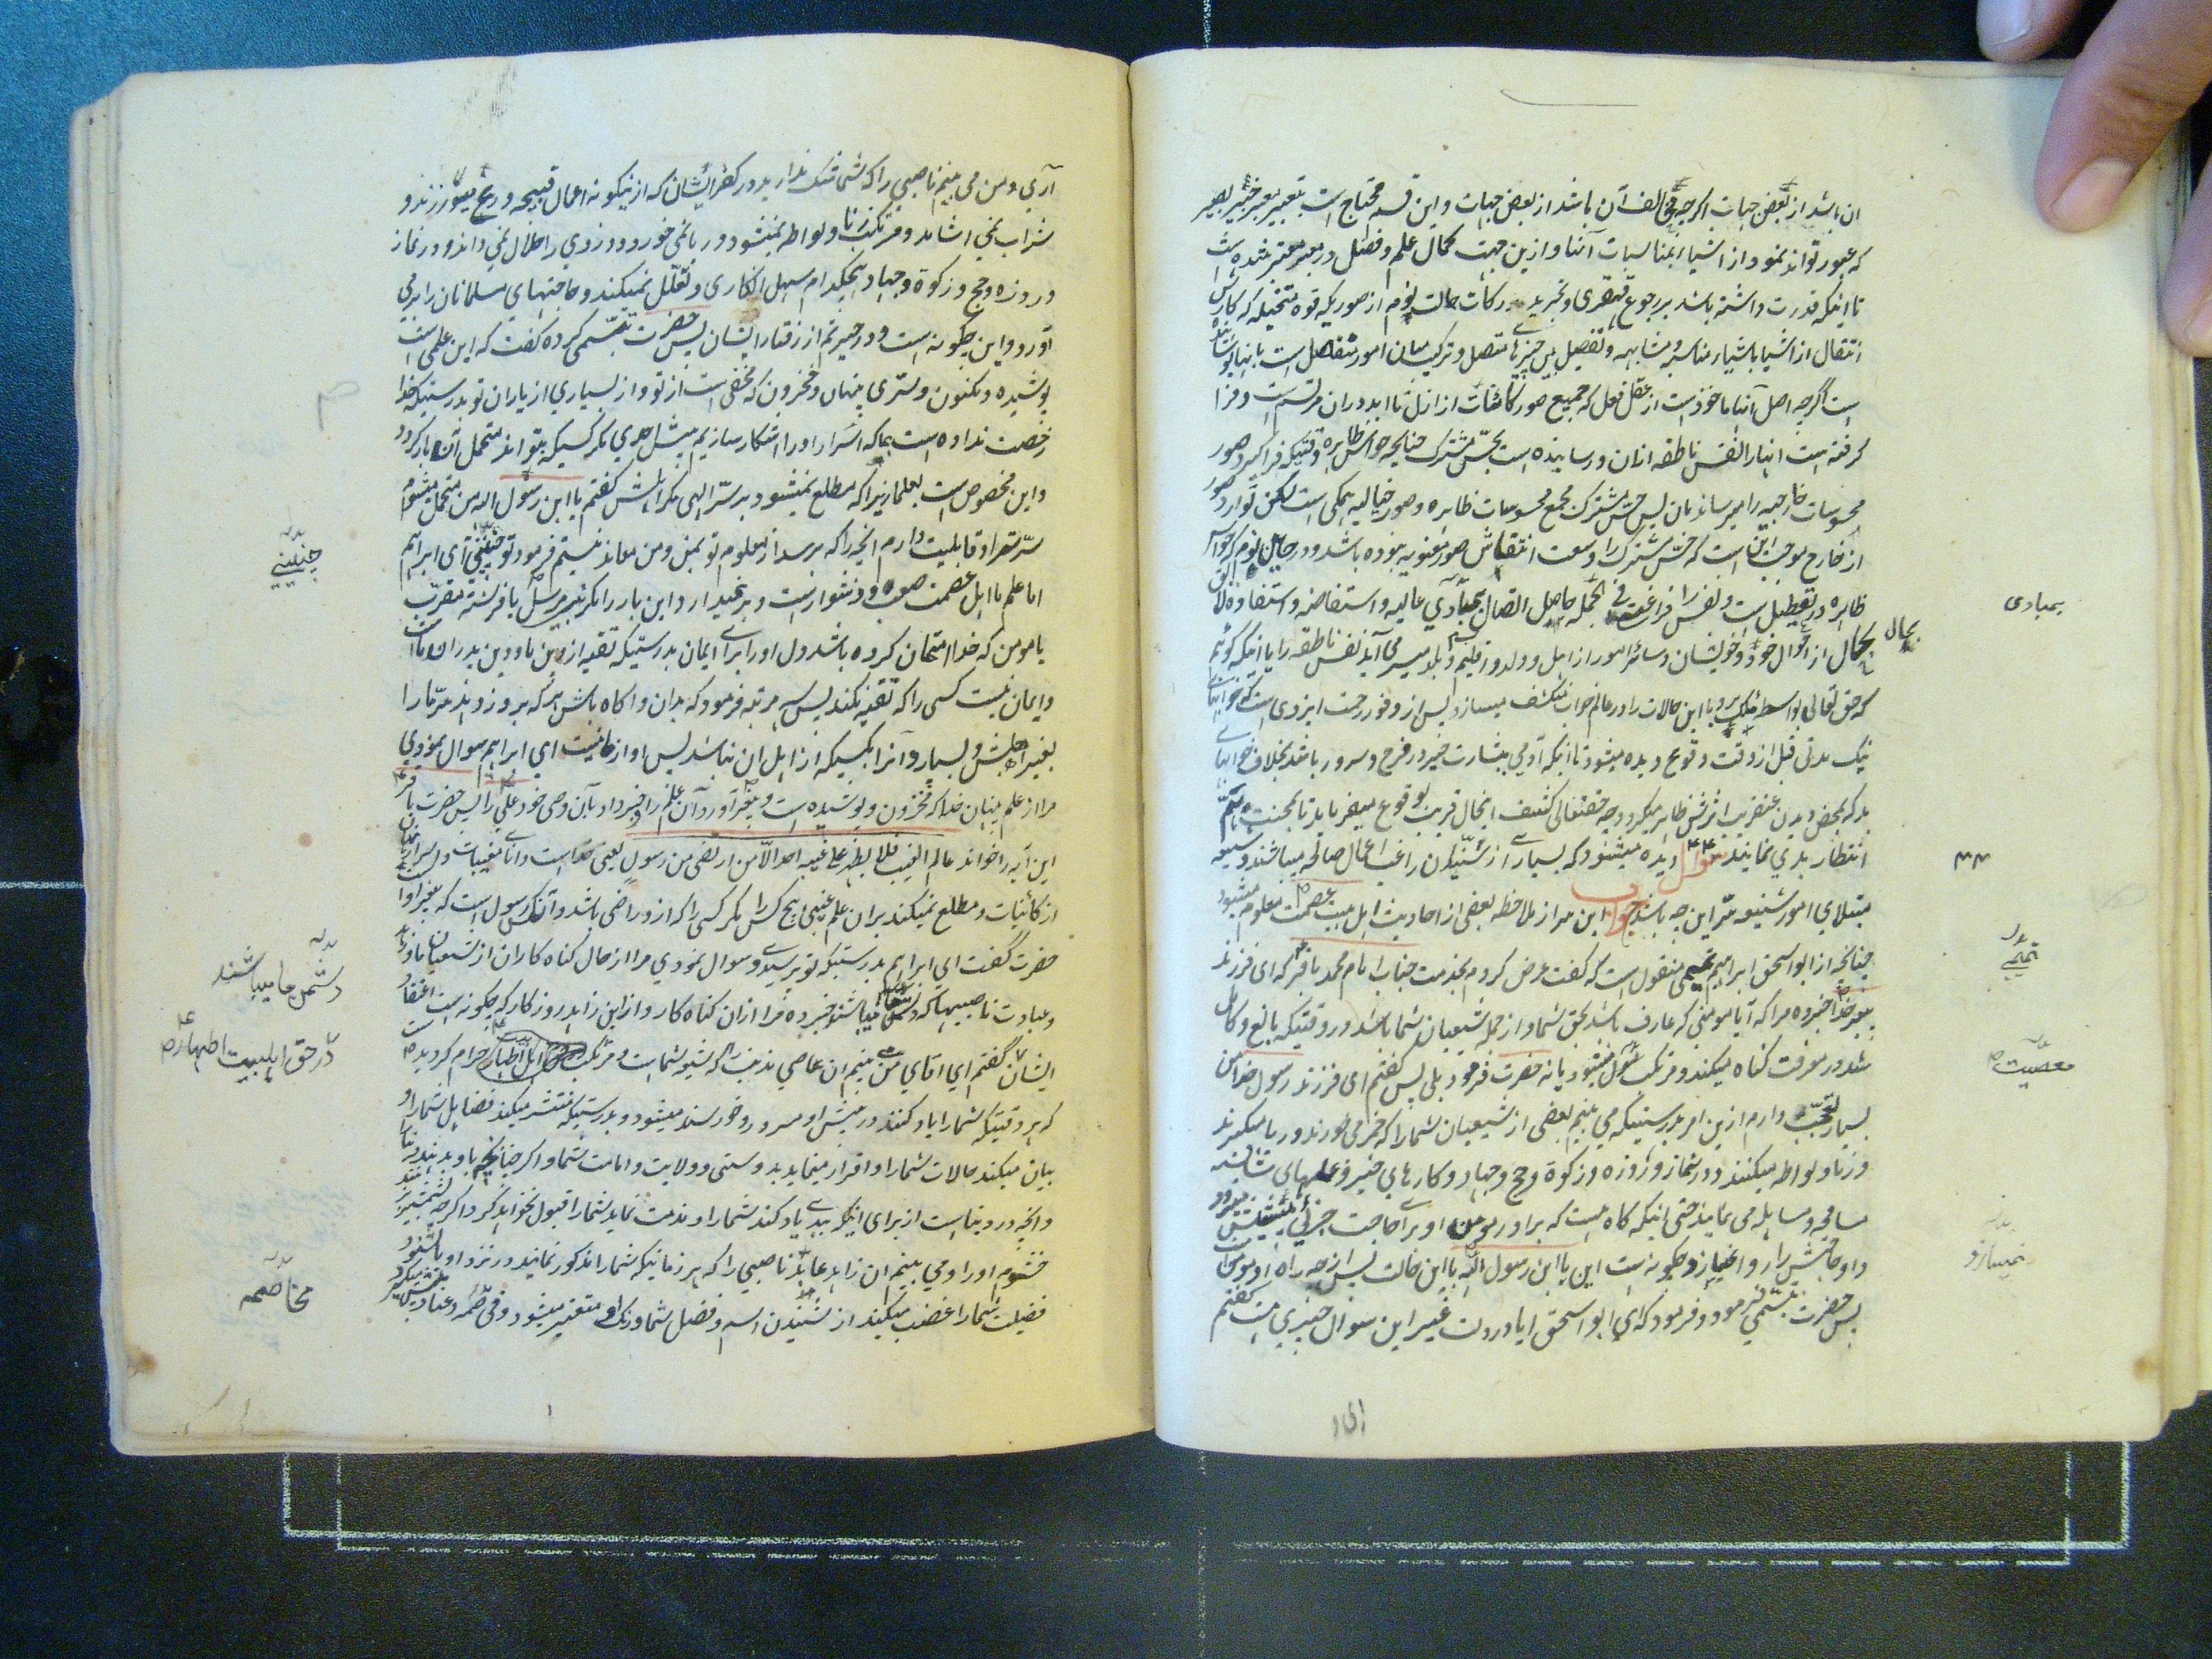 ان باشد از بعض جهات اگرچه مخالف آن باشد از بعض جهات و این قسم محتاج است بتعبیر معبر خبیر بصیر
که عبور تواند نمود از اشیاء بمناسبات آنها و ازین جهت کمال علم و فضل در معبر معتبر شده است
تا اینکه قدرت داشته باشد برجوع قهقری و تجرید مدرکات حالت نوم از صوریکه قوه متخیله که کارش
انتقال از اشیا باشیاء مناسبه و مشابهه و تفصیل بین چیزهای متصل و ترکیب میان امور منفصل است بانها پوشانیده
است اگرچه اصل آنها ماخوذ است از عقل فعل که جمیع صور کائنات از ازل تا ابد دران مرتسم است و فرا
گرفته است انها را نفس ناطقه ازان و رسانیده است بحس مشترک چنانچه حواس ظاهره وقتیکه فراگیرد صور
محسوسات خارجیه را میرساند بان پس حس مشترک مجمع محسوسات ظاهره و صور خیالیه همگی است لکن توارد صور
از خارج موجب این است که حس مشترک را وسعت انتقاش صور معنویه نبوده باشد و در حین نوم که حواس
ظاهره در تعطیل است و نفس را فراغتی فی الجمله حاصل اتصال بمبادی عالیه و استفاضه و استفاده لایق
بحال از احوال خود و خویشان و سائر امور از اهل و ولد و اقلیم و بلد میسر می آید نفس ناطقه را یا اینکه گوئیم
که حق تعالی بواسطه ملک رویا این حالات را در عالم خواب منکشف میسازد پس از وفور رحمت ایزدی است که خوابهای
نیک مدتی قبل از وقت وقوع دیده میشود تا انکه آدمی ببشارت خیر در فرح و سرور باشد بخلاف خوابهای
بد که بمحض دیدن عنقریب اثرش ظاهر میگردد چه حقتعالی کشف انحال قریب بوقوع میفرماید تا بمحنت و الم
انتظار بدی نمانند سوال ۴۴ دیده میشود که بسیاری از سنیان راغب اعمال صالحه میباشند و شیعه
مبتلای امور شنیعه سر این چه باشد جواب این سر از ملاحظه بعضی از احادیث اهل بیت عصمت معلوم میشود
چنانچه از ابو اسحق ابراهیم منقول است که گفت عرض کردم بخدمت جناب امام محمد باقر که ای فرزند
پیغمبر خدا خبر ده مرا که آیا مومنی که عارف باشد بحق شما و از جمله شیعیان شما باشد در وقتیکه بالغ و کامل
شد در معرفت گناه میکند و مرتکب میشود یا نه حضرت فرمود بلی پس گفتم ای فرزند رسول خدا من
بسیار تعجب دارم ازین امر بدرستیکه می بینم بعضی از شیعیان شما را که خمر می خورند و ربا میگیرند
و زنا و لواطه میکنند و در نماز و روزه و زکوة و حج و جهاد و کارهای خیر و عملهای شایسته
مسامحه و مساهله می نمایند حتی اینکه گاه هست که برادر مومن او برای حاجت جزئی پیشش میرود
و او حاجتش را روا نمیسازد چگونه است این یا ابن رسول الله با این حالت پس از چه راه او مومن است
پس حضرت تبسمی نمود و فرمود که ای ابو اسحق ایا در دلت غیر این سوال چیزی هست گفتم
بمبادی
بحال
۴۴
معصیت
نمیسازد
آری و من می بینم ناصبی را که شما شک ندارید در کفر ایشان که ازینگونه اعمال قبیحه و ریح میورزند و
شراب نمی اشامد و مرتکب زنا و لواطه نمیشود و ربا نمی خورد و دزدی را حلال نمی داند و در نماز
و روزه و حج و زکوة و جهاد هیچکدام سهل انگاری و تعلل نمیکند و حاجتهای مسلمانان را بر می
آورد و این چگونه است و در حیرتم از رفتار ایشان پس حضرت تبسمی کرده گفت که این علمی است
پوشیده و مکنون و سری پنهان و مخزون که مخفی است از تو و از بسیاری از یاران تو بدرستیکه خدا
رخصت نداده است بما که اسرار او را اشکار سازیم مگر کسیکه بتواند متحمل آن بار گردد
و این مخصوص است بعلما زیرا که مطلع نمیشود بر سر الهی مگر اهلش گفتم یا ابن رسول الله من متحمل میشوم
سر شما را و قابلیت دارم انچه را که برسد از علوم تو بمن و من معاند نیستم فرمود تو چنینی ای ابراهیم
اما علم ما اهل عصمت صعب و دشوار است و برنمیدارد این بار را مگر پیغمبر مرسل یا فرشته مقرب
یا مومن که خدا امتحان کرده باشد دل او را برای ایمان بدرستیکه تقیه از دین ما و دین پدران ما است
و ایمان نیست کسی را که تقیه نکند پس سه مرتبه فرمود که بدان و اگاه باش هر که بروز دهد سر ما را
بغیر اهلش و بسپارد آنرا بکسیکه از اهل ان نباشد پس او از ما نیست ای ابراهیم سوال نمودی
مرا از علم پنهان خدا که مخزون و پوشیده است و پیغمبر آورد آن علم را و خبر داد بآن وصی خود علی را پس حضرت باقر
این آیه را خواند عالم الغیب فلا یظهر علی غیبه احدا الا من ارتضی من رسول یعنی خداست دانای مغیبات
از کائنات و مطلع نمیکند بران علم غیبی هیچ کس را مگر کسی را که ازو راضی باشد و آنکس رسول است که
حضرت گفت ای ابراهیم بدرستیکه تو پرسیدی و سوال نمودی مرا از حال گناه کاران از شیعیان ما و زهاد
و عبادت ناصبیها که دشمن ما میباشند خبر ده مرا ازان گناه کار و ازاین زاهد روزگار که چگونه است اعتقاد
ایشان گفتم ای اقای من می بینم ان عاصی مذنب را که شیعه شما است و مرتکب حرام گردیده است
که هر وقتیکه شما را یاد کنند در پیش او مسرور و خورسند میشود و بدرستیکه منتشر میکند فضایل شما را و
بیان میکند حالات شما را و اقرار مینماید بدوستی و ولایت و امامت شما و اگر چنانچه باو بدهند دنیا
و انچه در دنیاست از برای اینکه ببدی یاد کند شما را و مذمت نماید شما را قبول نخواهد کرد اگرچه بشمشیر زنند
میشوم او را و می بینم ان زاهد عابد ناصبی را که هر زمانیکه شما را مذکور نمایند در نزد او یا بشنود
فضیلت شما را غضب میکند از شنیدن اسم و فضل شما و رنگ او متغیر میشود و فی
چنینی
دشمن ما میباشند
در حق اهلبیت اطهار
مخاصمه